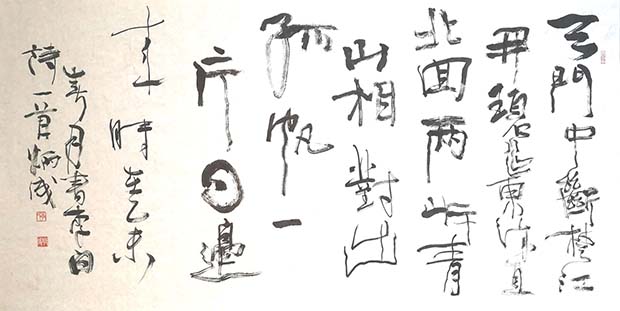 天門中斷楚江
开碧水東流直
北回两岸青
山相對出
孤帆一
片日邊
来時在乙未
春月書李白
詩一首炳成